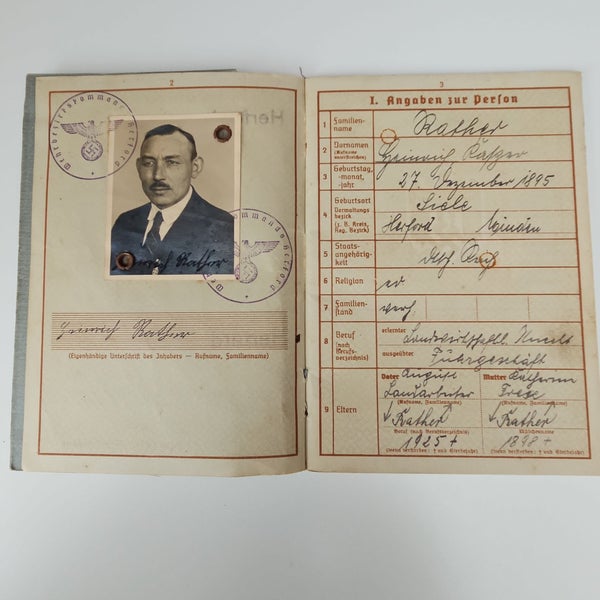 2
Wehrbezirkskommando Herford
Heinrich Rather
Heinrich Rather
(Eigenhändige Unterschrift des Inhabers — Rufname, Familienname)
3
I. Angaben zur Person
1 Familien-
name
Rather
2 Vornamen
(Rufname
unterstreichen)
Heinrich,
3 Geburtstag,
-monat,
-jahr
27. Dezember 1895
4 Geburtsort
Verwaltungs-
bezirk
(z. B. Kreis,
Reg. Bezirk)
Siele
Herford
5 Staats-
angehörig-
keit
dtsch. Reich
6 Religion
ev
7 Familien-
stand
verh.
8 Beruf
(nach
Berufs-
verzeichnis)
erlernter
Landwirtschaftl.
ausgeübter
Fuhrgeschäft
9 Eltern
Vater August
Landarbeiter
(Rufname, Familienname)
Rather
Beruf (nach Berufsverzeichnis)
1925 +
(wenn verstorben: † und Sterbejahr)
Mutter
(Rufname, Familienname)
Rather
Mädchenname
1898 +
(wenn verstorben: † und Sterbejahr)